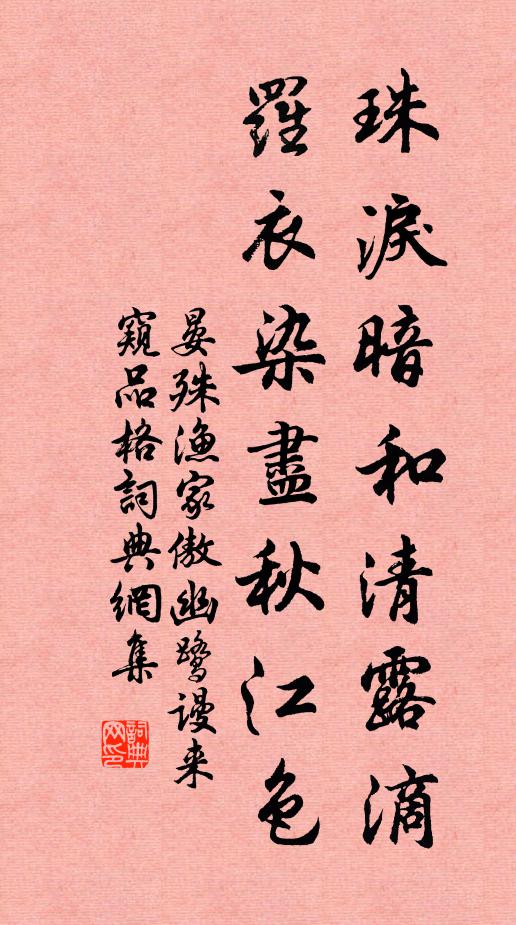 珠淚暗和清露滴
羅衣染盡秋江色
晏殊漁家傲幽鷺謾来
窺品格詞典網集
詞典
网印